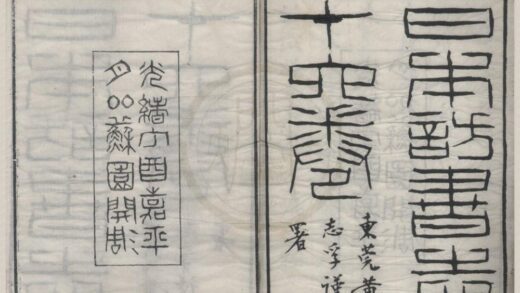 日本訪書志
十六卷
東莞黃
志孚謹
署
光緒丁酉嘉平
月鄰蘇園開雕